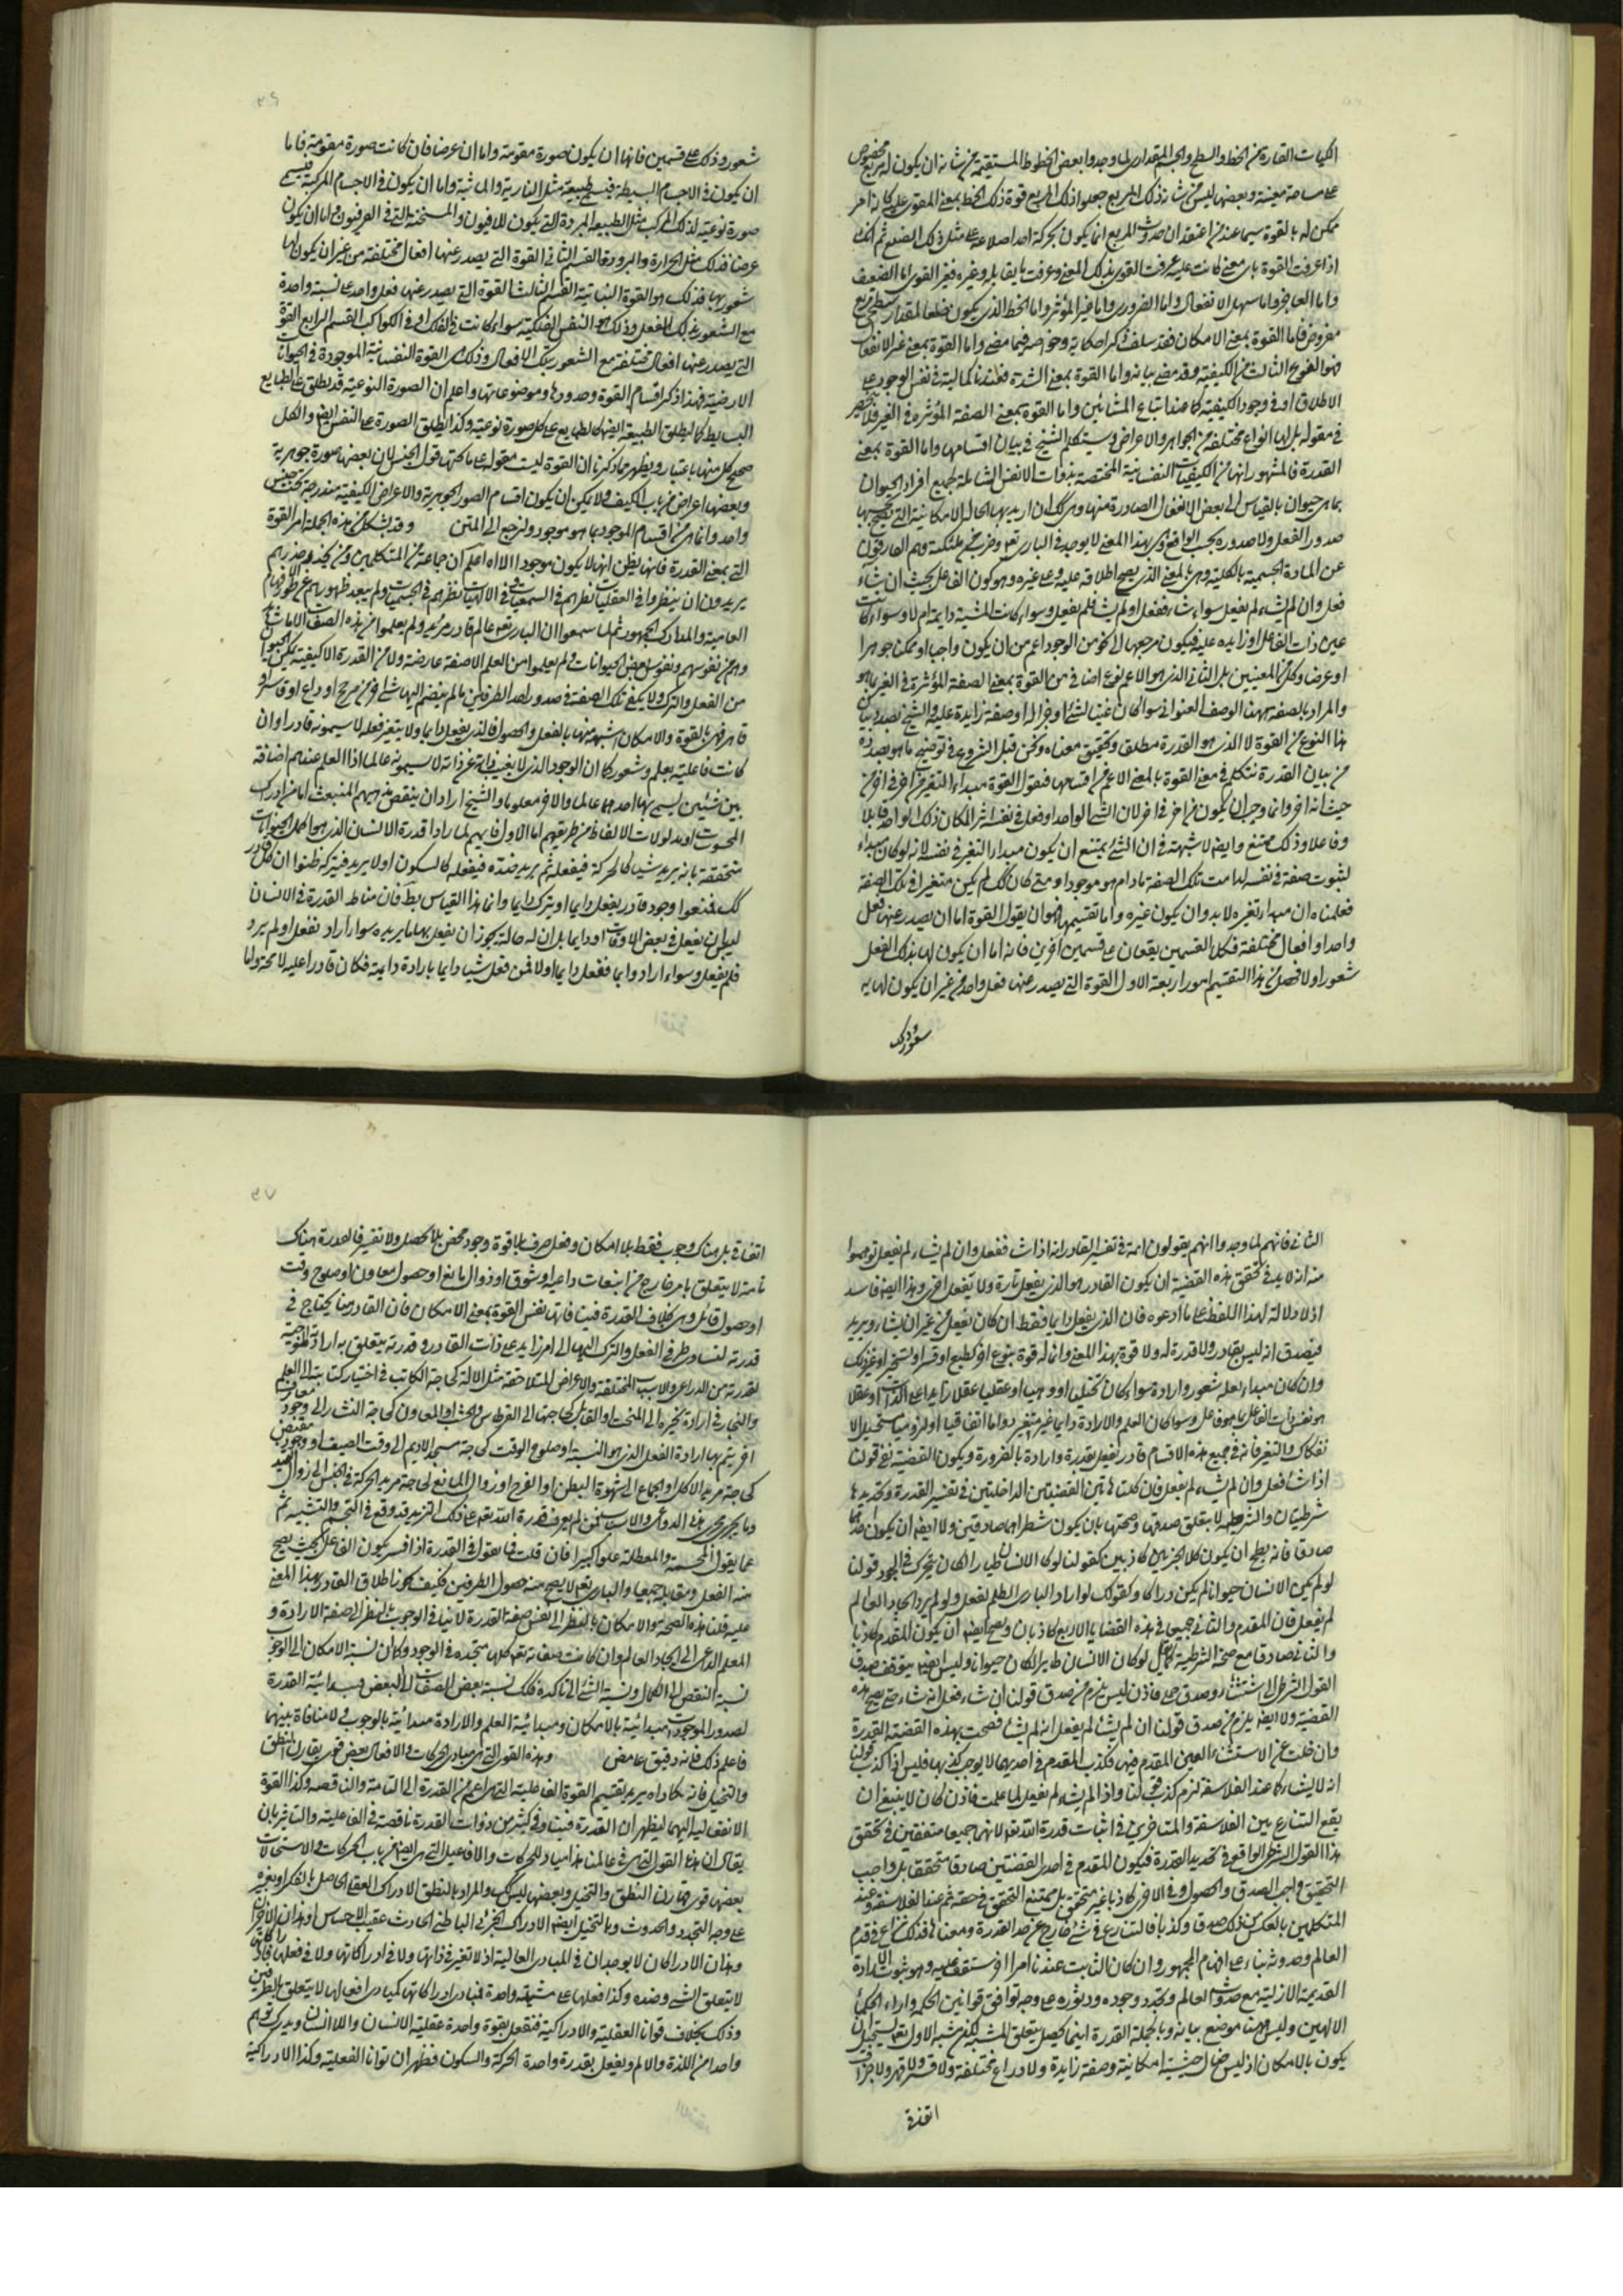 الكميات القارة من الخط والسطح والجسم المقداري لما وجدوا بعض الخطوط المستقيمة من شانه ان يكون له مربع مخصوص
على مساحة معينة وبعضها ليس من شانه ذلك المربع جعلوا ذلك المربع قوة ذلك الخط بمعنى المقوى عليه كانه امر
ممكن له بالقوة سيما عند من اعتقد ان حدوث المربع انما يكون بحركة احد اضلاعه على مثل ذلك الضلع ثم انك
اذا عرفت القوة باى معنى كانت عليه عرفت القوى بذلك المعنى وعرفت ما يقابله وغيره فغير القوى اما الضعيف
واما العاجز واما سهل الانفعال واما الضرورى واما غير المؤثر واما الخط الذى يكون ضلعا لمقدار سطحى مربع
مفروض فاما القوة بمعنى الامكان فقد سلف ذكر احكامه وخواصه فيما مضى واما القوة بمعنى عدم الانفعال
فهو النوع الثالث من الكيفية وقد مضى بيانه واما القوة بمعنى الشدة فعندنا كمالية في نفس الوجود على
الاطلاق او في وجود الكيفية كما عند اتباع المشائين واما القوة بمعنى الصفة المؤثرة في الغير فلا تنحصر
في مقولة بل لها انواع مختلفة من الجواهر والاعراض وسيتكلم الشيخ في بيان اقسامها واما القوة بمعنى
القدرة فالمشهور انها من الكيفيات النفسانية المختصة بذوات الانفس الشاملة لجميع افراد الحيوان
بما هي حيوان بالقياس الى بعض الافعال الصادرة منها وهي كك ان اريد بها الحال الامكانية التى يصح بحسبها
صدور الفعل ولا صدوره بحسب الواقع وهى بهذا المعنى لا يوجد في البارى تعم وضرب من ملائكته وهم المفارقون
عن المادة الجسمية بالكلية وهى بالمعنى الذى يصح اطلاقه عليه وعلى غيره وهو كون الفاعل بحيث ان شاء
فعل وان لم يشاء لم يفعل سواء شاء ففعل او لم يشاء فلم يفعل وسواء كانت المشية دايمة ام لا وسواء كانت
عين ذات الفاعل او زايده عليه فيكون مرجعها الى نحو من الوجود اعم من ان يكون واجبا او ممكنا جوهرا
او عرضا وكل من المعنيين بل الثانى الذى هو الاعم نوع اضافى من القوة بمعنى الصفة المؤثرة في الغير بما هو
والمراد بالصفة ههنا الوصف العنوانى سواء كان عينا لشئ او جزءا له او صفة زايدة عليه والشيخ بصدد بيان
هذا النوع من القوة لا الذى هو القدرة مطلقا وتحقيق معناه ونحن قبل الشروع في توضيح ما هو بصدده
من بيان القدرة نتكلم في معنى القوة بالمعنى الاعم من اقسامها فنقول القوة مبداء التغير من اخر في اخر من
حيث انه اخر وانما وجب ان يكون من اخر في اخر لان الشئ الواحد لو فعل في نفسه اثرا لكان ذلك الواحد قابلا
وفاعلا وذلك ممتنع وايضا لا شبهة في ان الشئ يمتنع ان يكون مبداء التغير في نفسه لانه لو كان مبداء
لثبوت صفة في نفسه لدامت تلك الصفة ما دام هو موجودا ومتى كان كك لم يكن متغيرا في تلك الصفة
فعلمناه ان مبداء تغيره لا بد وان يكون غيره واما تقسيمها فهو ان يقول القوة اما ان يصدر عنها فعل
واحد او افعال مختلفة فكل القسمين يقعان على قسمين آخرين فانه اما ان يكون لها بذلك الفعل
شعور او لا فحصل من هذا التقسيم امور اربعة الاول القوة التى يصدر عنها فعل واحد من غير ان يكون لها به
شعور وذلك
شعور وذلك على قسمين فانها اما ان يكون صورة مقومة واما ان عرضا فان كانت صورة مقومة فاما
ان يكون في الاجسام البسيطة فيسمى طبيعة مثل النارية والمائية واما ان يكون في الاجسام المركبة فيسمى
صورة نوعية لذلك المركب مثل الطبيعة المبردة التى يكون للافيون والمسخنة التى في الفرفيون واما ان يكون
عرضا فذلك مثل الحرارة والبرودة القسم الثانى القوة التى يصدر عنها افعال مختلفة من غير ان يكون لها
شعور بها فذلك هو القوة النباتية القسم الثالث القوة التى يصدر عنها فعل واحد على نسبة واحدة
مع الشعور بذلك الفعل وذلك هو النفس الفلكية سواء كانت في الفلك او في الكواكب القسم الرابع القوة
التى يصدر عنها افعال مختلفة مع الشعور بتلك الافعال وذلك هى القوة النفسانية الموجودة في الحيوانات
الارضية فهذا ذكر اقسام القوة وحدودها وموضوعاتها واعلم ان الصورة النوعية قد يطلق على الطبايع
البسايط كما يطلق الطبيعة ايضا كالطبايع على كل صورة نوعية وكذا يطلق الصورة على النفس ايضا والكل
صحيح كل منها باعتبار ويظهر مما ذكرنا ان القوة ليست مقولة على ما تحتها قول الجنس لان بعضها صورة جوهرية
وبعضها اعراض من باب الكيف ولا يمكن ان يكون اقسام الصور الجوهرية والاعراض الكيفية مندرجة تحت جنس
واحد وانما هى من اقسام الموجود بما هو موجود ولنرجع الى المتن وقد يشكل من هذه الجملة امر القوة
التى بمعنى القدرة فانها يظن انها لا يكون موجودا الا اه اعلم ان جماعة من المتكلمين ومن يحذو حذوهم
يريدون ان ينظروا في العقليات نظرهم في السمعيات وفي الالهيات نظرهم في الجسميات ولم يبعد ظهورهم عن طور افهام
العامية والمدارك الجمهورثم لما سمعوا ان البارى تعم عالم قادر مريد ولم يعلموا من هذه الصفات الا ما شاهدوا
وهم من نفوسهم ونفوس بعض الحيوانات ولم يعلموا من العلم الا صفة عارضة ولا من القدرة الا كيفية يمكن بها الحيوان
من الفعل والترك ولا يكفى تلك الصفة في صدور احد الطرفين ما لم ينضم اليها شئ اخر من مرجح او داع او قاسر او
قاهر فهى بالقوة والامكان اشبه منها بالفعل والحصول فالذى يفعل دايما ولا يتغير فعله لا يسمونه قادرا وان
كانت فاعليته بعلم وشعور كما ان الوجود الذى لا يغيب ذاته عن ذاته لا يسمونه عالما اذا العلم عندهم اضافة
بين شيئين يسمى بها احدهما عالما والاخر معلوما والشيخ اراد ان ينقض مذهبهم المنبعث اما من ادراك
المحسوسات او مدلولات الالفاظ من طريقهم اما الاول فانهم لما راوا قدرة الانسان الذى هو اكمل الحيوانات
متحققة بانه يريد شيئا كالحركة فيفعله ثم يريد ضده فيفعله كالسكون او لا يريد فيتركه ظنوا ان كل قادر
كك فمنعوا وجود قادر يفعل دايما او يترك دايما وانما هذا القياس بط فان مناط القدرة في الانسان
ليس ان يفعل في بعض الاوقات او دايما بل ان له حالة يجوز ان يفعل بها ما يريده سواء اراد ففعل او لم يرد
فلم يفعل وسواء اراد دايما ففعل دايما اولا فمن فعل شيئا دايما بارادة دايمة فكان قادرا عليه لا محة واما
الثانى فانهم لما وجدوا انهم يقولون ائمة في تفسير القادر انه اذا شاء ففعل وان لم يشاء لم يفعل توهموا
منه انه لا بد في تحقق هذه القضية ان يكون القادر هو الذى يفعل تارة ولا يفعل اخرى وهذا ايضا فاسد
اذ لا دلالة لهذا اللفظ على ما ادعوه فان الذى يفعل دايما فقط ان كان يفعل من غير ان يشاء ويريد
فيصدق انه ليس بقادر ولا قدرة له ولا قوة بهذا المعنى وانما له قوة بنوع اخر كطبع او قسر او تسخير او غير ذلك
وان كان مبداء فعله شعور وارادة سواء كان تخيليا او وهميا او عقليا عقلا زايدا على الذات او عقلا
هو نفس ذات الفاعل بما هو فاعل وسواء كان العلم والارادة دايما غير متغير دواما اتفاقيا او لزوميا مستحيل الا
نفكاك والتغير فانه في جميع هذه الاقسام قادر يفعل بقدرة وارادة بالضرورة ويكون القضية في قولنا
اذا شاء فعل وان لم يشاء لم يفعل فان كلتا هاتين القضيتين الداخلتين في تفسير القدرة وتحديدها
شرطيتان والشرطية لا يتعلق صدقها وصحتها بان يكون شطراها صادقتين ولا ايضا ان يكون احدهما
صادقا فانه يصح ان يكون كلا الجزئين كاذبين كقولنا لو كان الانسان طيارا لكان يتحرك في الجو وقولنا
لو لم يكن الانسان حيوانا لم يكن دراكا وكقولك لو اراد البارى الظلم لفعل ولو لم يرد ايجاد العالم
لم يفعل فان المقدم والتالى جميعا في هذه القضايا الاربع كاذبان ويصح ايضا ان يكون المقدم كاذبا
والتالى صادقا مع صحة الشرطية كما لو كان الانسان طايرا لكان حيوانا وليس ايضا يتوقف صدق
القول الشرطى الى استثناء وصدق حملى فاذن ليس يلزم من صدق قولنا ان شاء فعل انه شاء حتى يصح هذه
القضية ولا ايضا يلزم من صدق قولنا ان لم يشاء لم يفعل انه لم يشاء فصحت بهذه القضية القدرة
وان خلت عن الاستثناء لعين المقدم فيها فكذب المقدم في احديهما لا يوجب كذبها فليس اذا كذب قولنا
انه لا يشاء كما عند الفلاسفة لزم كذب قولنا واذا لم يشاء لم يفعل لما علمت فاذن كان لا ينبغى ان
يقع التنازع بين الفلاسفة والمتاخرين في اثبات قدرة الله تعم لانهم جميعا متفقين في تحقق
هذا القول الشرطى الواقع في تحديد القدرة فيكون المقدم في احدى القضيتين صادقا متحققا بل واجب
التحقق واجب الصدق والحصول وفي الاخرى كاذبا غير متحقق بل ممتنع التحقق في حقه تعم عند الفلاسفة وعند
المتكلمين بالعكس من ذلك صدقا وكذبا فالتنازع في شئ خارج عن حد القدرة ومعناها فذلك نزاع في قدم
العالم وحدوثه بناء على افهام الجمهور وان كان الثابت عندنا امرا اخر ستقف عليه وهو ثبوت الارادة
القديمة الازلية مع حدوث العالم وتجدد وجوده ودثوره على وجه توافق قوانين الحكمة واراء الحكماء
الالهيين وليس ههنا موضع بيانه وبالجملة القدرة اينما يحصل يتعلق بالمشية لكن مشية الاول تعم يستحيل ان
يكون بالامكان اذ ليس هناك حيثية امكانية وصفة زايدة ولا دواع مختلفة ولا قسر ولا قهر ولا جزاف
اتفاق
اتفاقى بل هناك وجوب فقط بلا امكان وفعل صرف بلا قوة وجود محض بلا تحصل ولا تغير فالقدرة هناك
تامة لا يتعلق بامر خارج من انبعاث داعية او شوق او زوال مانع او حصول معاون او صلوح وقت
او حصول قابل وهى بخلاف القدرة فينا فانها نفس القوة بمعنى الامكان فان القادر منا يحتاج في
قدرته لتساوى طرفى الفعل والترك اليها الى امر زايد على ذات القادر وقدرته يتعلق به ارادته الموجبة
لقدرته من الدواعى والاسباب المختلفة والاعراض المتلاحقة مثل الالة كحاجة الكاتب في اختيار كتابته الى القلم
والنجار في ارادة نجره الى المنحت او القابل كحاجتها الى القرطاس والخشب او المعاون كحاجة النشار الى وجود معاون
اخر يتم بها ارادة الفعل الذى هو النسبة او صلوح الوقت كحاجة مسبح الاديم الى وقت الصيف او وجود مقتضى
كحاجة مريد الاكل او الجماع الى شهوة البطن او الفرج او زوال المانع كحاجة مريد الحركة في الحبس الى زوال القيد
وما يجرى مجرى هذه الدواعى والاسباب فمن لم يعرف قدرة الله تعم على ذلك التنزيه فقد وقع في التجسم والتشبيه تعم
عما يقول المجسمة والمعطلة علوا كبيرا فان قلت فما تقول في القدرة اذا فسر بكون الفاعل بحيث يصح
منه الفعل ومقابله جميعا والبارى تعم لا يصح منه حصول الطرفين فكيف يكون اطلاق القادر بهذا المعنى
عليه قلنا هذه الصحة هو الامكان بالنظر الى نفس صفة القدرة لا ينافى الوجوب بالنظر الى صفة الارادة و
العلم الداعى الى ايجاد العالم وان كانت صفاته تعم كلها متحدة في الوجود وكان نسبة الامكان الى الوجوب
نسبة النقص الى الكمال ونسبة الشئ الى تاكده فكك نسبة بعض الصفات الى البعض فمبدائية القدرة
لصدور الموجودات مبدائية بالامكان ومبدائية العلم والارادة مبدائية بالوجوب ولا منافاة بينهما
فاعلم ذلك فانه دقيق غامض وهذه القوى التى هى مبادى الحركات والافعال بعض قوى يقارن النطق
والتخيل فانه مكاداه يريد تقسيم القوة الفاعلية التى هى اعم من القدرة الى التامة والناقصة وكذا القوة
الانفعالية اليهما ليظهر ان القدرة فينا وفي كثير من ذوات القدرة ناقصة في الفاعلية والتاثير بان
يقال ان هذه القوى التى هى في عالمنا هذا مبادى للحركات والافاعيل التى هى ايضا من باب الحركات والاستحالات
بعضها قوى تقارن النطق والتخيل وبعضها ليس كك والمراد بالنطق الادراك العقلى الحاصل بالفكر او بغيره
على وجه التجدد والحدوث وبالتخيل ايضا الادراك الجزئى الباطنى الحادث عقيب الاحساس او نداء الاخران
وهذان الادراكان لا يوجدان في المبادى العالية اذ لا تغير في ذاتها ولا في ادراكاتها ولا في فعلها فادراكاتها
لا يتعلق الشئ وضده وكذا افعلها على مشية واحدة فمبادى ادراكاتها كمبادى افعالها لا يتعلق بالطرفين
وذلك بخلاف قوانا العقلية والادراكية فنعقل بقوة واحدة عقلية الانسان واللاانسان ويدرك وهم
واحد امر اللذة والالم ويفعل بقدرة واحدة الحركة والسكون فظهر ان قوانا الفعلية وكذا الادراكية